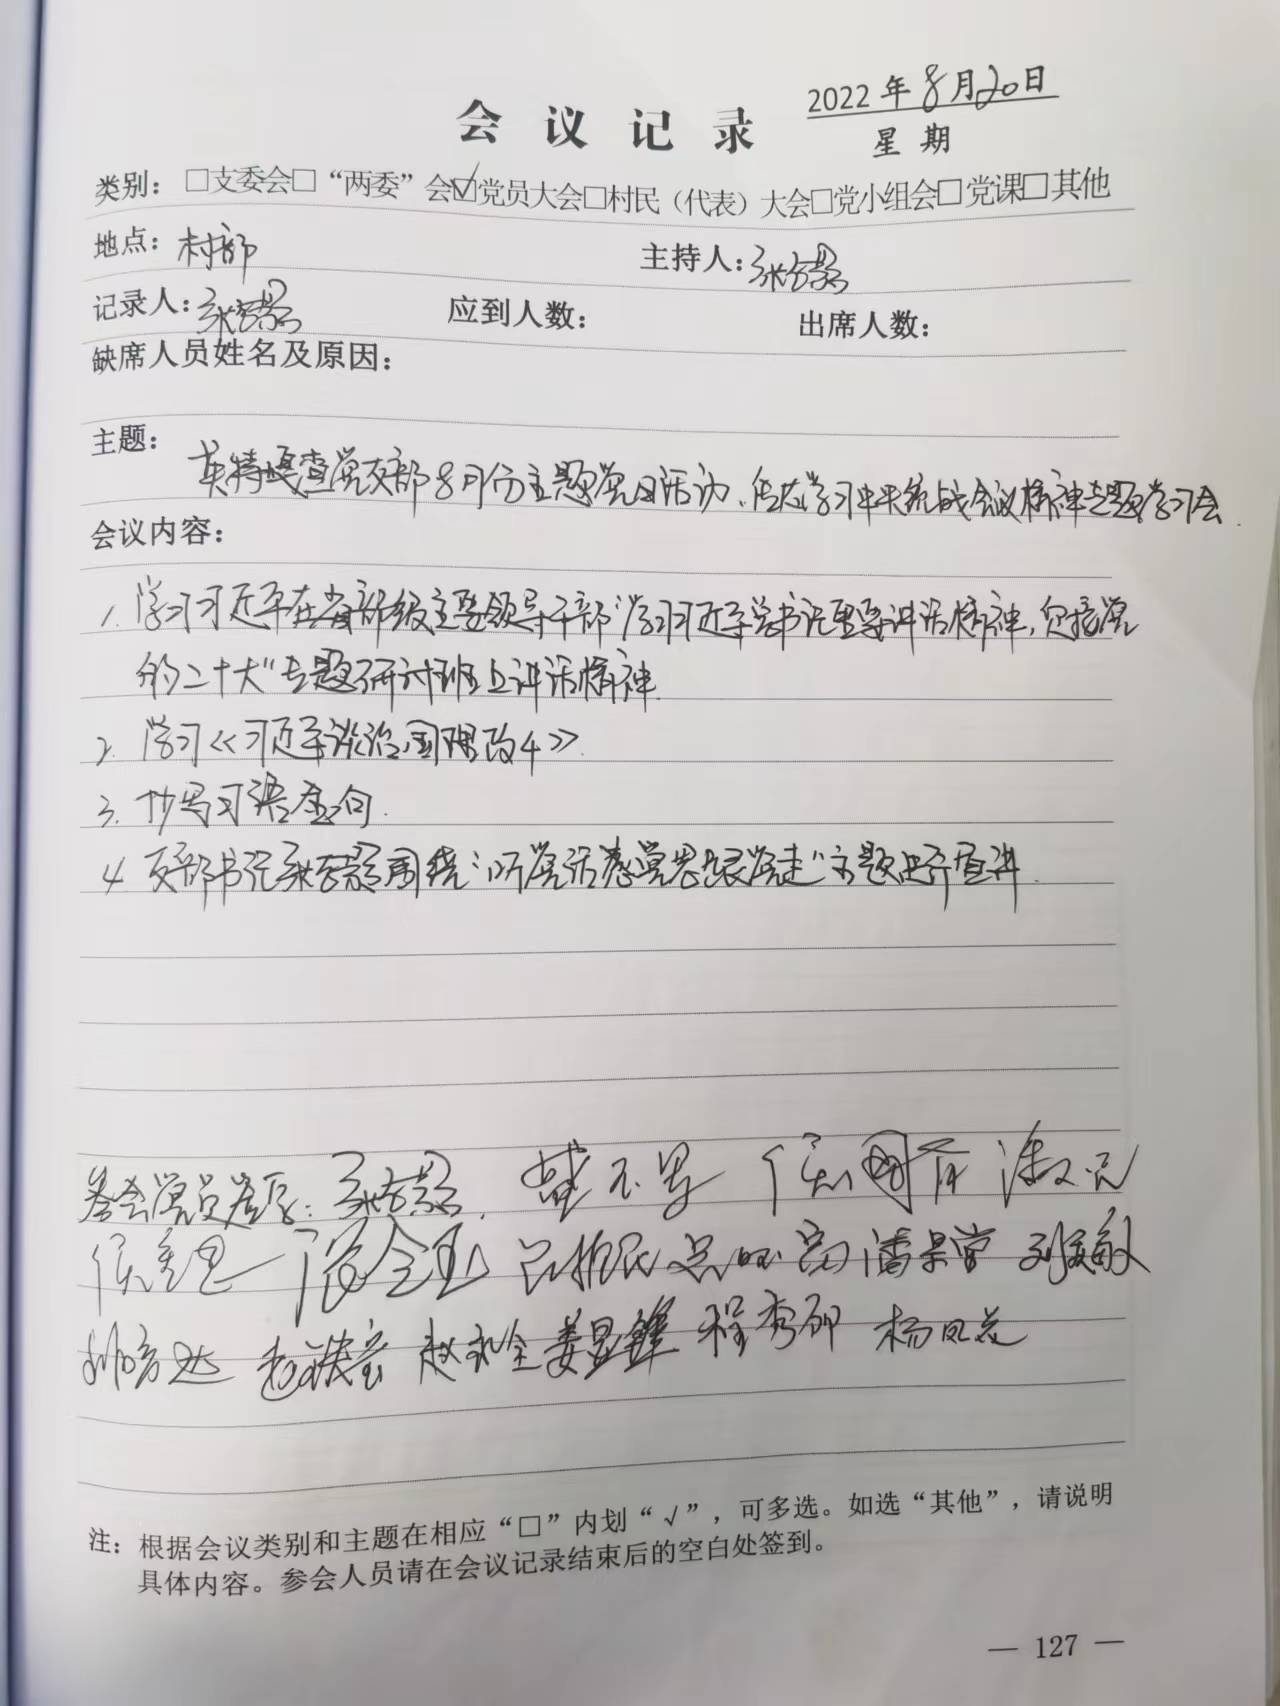 会议记录
2022年8月20日
星期
类别：□支委会□“两委”会☑党员大会□村民（代表）大会□党小组会□党课□其他
地点：村部 主持人：
记录人： 应到人数： 出席人数：
缺席人员姓名及原因：
主题：英特嘎查党支部8月份主题党日活动、传达学习中央统战会议精神专题学习会.
会议内容：
1. 学习习近平在省部级主要领导干部“学习习近平总书记重要讲话精神，迎接党
的二十大”专题研讨班上讲话精神.
2. 学习《习近平谈治国理政4》.
3. 抄写习语金句.
4 支部书记 围绕“听党话感党恩跟党走”主题 宣讲.
参会党员签字： 
侯 潘景常 刘敏
姜 程秀 杨凤
注：根据会议类别和主题在相应“□”内划“√”，可多选。如选“其他”，请说明
具体内容。参会人员请在会议记录结束后的空白处签到。
— 127 —